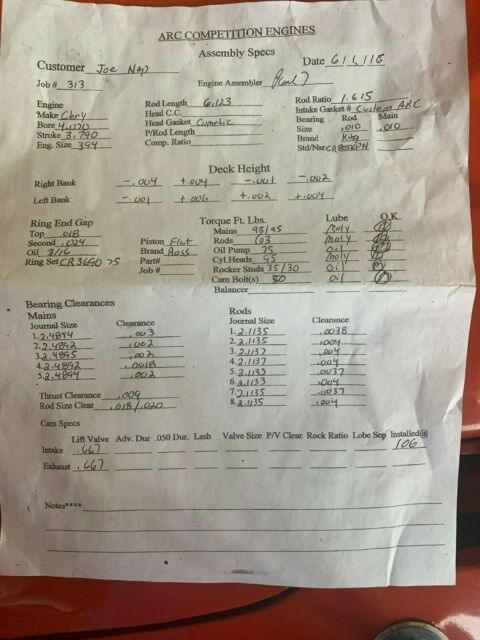 ARC COMPETITION ENGINES
Assembly Specs
Customer Joe Date 6/1/18
Job # 313 Engine Assembler
Engine Rod Length 6.123 Rod Ratio 1.615
Make Chry Head C.C. Intake Gasket # Custom ARC
Bore 4.070 Head Gasket Cometic Bearing Rod Main
Stroke 3.790 P/Rod Length Size .010 .010
Eng. Size 394 Comp. Ratio Brand King
Std/Nar
Deck Height
Right Bank -.004 +.004 -.001 -.002
Left Bank -.001 +.006 +.002 +.004
Ring End Gap Torque Ft. Lbs. Lube O.K.
Top .018 Mains 95/95 Moly
Second .024 Piston Flat Rods 103 Moly
Oil 3/16 Brand Ross Oil Pump 75 Oil
Ring Set Part# Cyl.Heads 95 Moly
Job # Rocker Studs 35/30 Oil
Cam Bolt(s) Oil
Balancer
Bearing Clearances
Mains Rods
Journal Size Clearance Journal Size Clearance
1. 2.4894 .003 1. 2.1135 .0038
2. 2.4892 .002 2. 2.1135 .004
3. 2.4895 .002 3. 2.1137 .004
4. 2.4892 .0018 4. 2.1137 .004
5. 2.4894 .002 5. 2.1133 .0037
6. 2.1133 .004
Thrust Clearance .009 7. 2.1135 .0037
Rod Size Clear .018/.020 8. 2.1135 .004
Cam Specs
Lift Valve Adv. Dur .050 Dur. Lash Valve Size P/V Clear Rock Ratio Lobe Sep Installed@
Intake .667 106
Exhaust .667
Notes****